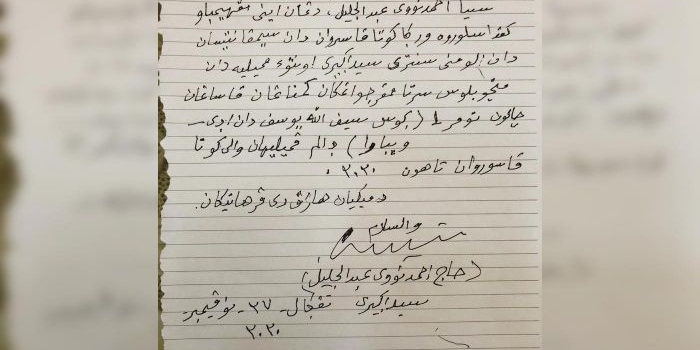 سيا احمد نووي عبد الجليل، دڠان ايني مڠهيمباو
كفدا سلوروه وركا كوتا ڤاسروان دان سيمڤاتيسان
دان الومني سنتري سيدݢيري اونتوء مميليه دان
منچوبلوس سرتا ممڤرجواڠكان كمناڠان ڤاساڠان
چالون نومر 1 (ݢوس سيف الله يوسف دان ادي -
ويباوا) دالم ڤميليهان والي كوتا
ڤاسوروان تاهون ٢٠٢٠.
دميكيان هارڤ دي ڤرهاتيكان.
والسلام
(حاج احمد نووي عبد الجليل)
سيدݢيري تڠݢال - ٢٧ - نوڤيمبر -
٢٠٢٠